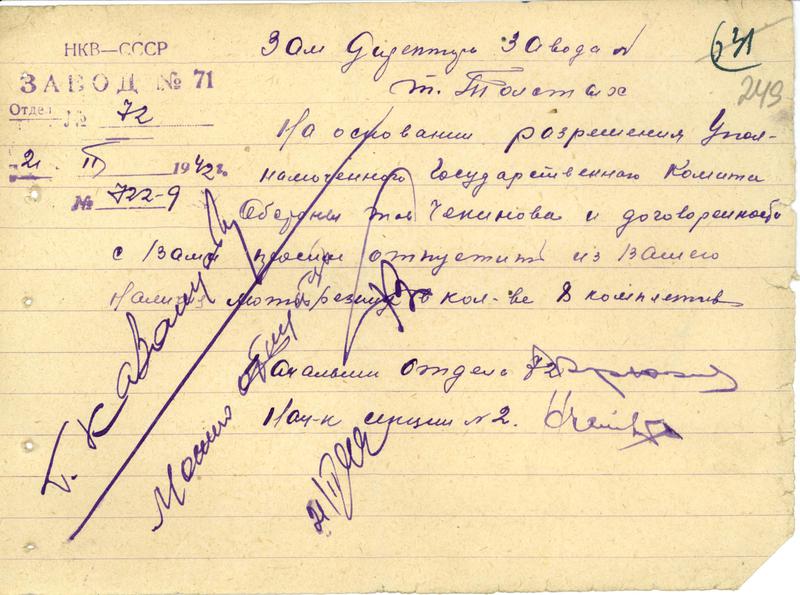 НКВ—СССР
ЗАВОД № 71
Отдел № 72
21 II 1942 г.
№ 722-9
631
249
Зам Директору Завода №
т. Толстых
На основании разрешения Упол-
намоченного Государственного Комита
Обороны тов Чекинова и договоренности
с Вами просим отпустить из Вашего
Наличия кол-ве 8 комплектов
Начальник Отдела 72
Нач-к секции № 2.
т.
Можно
21/II